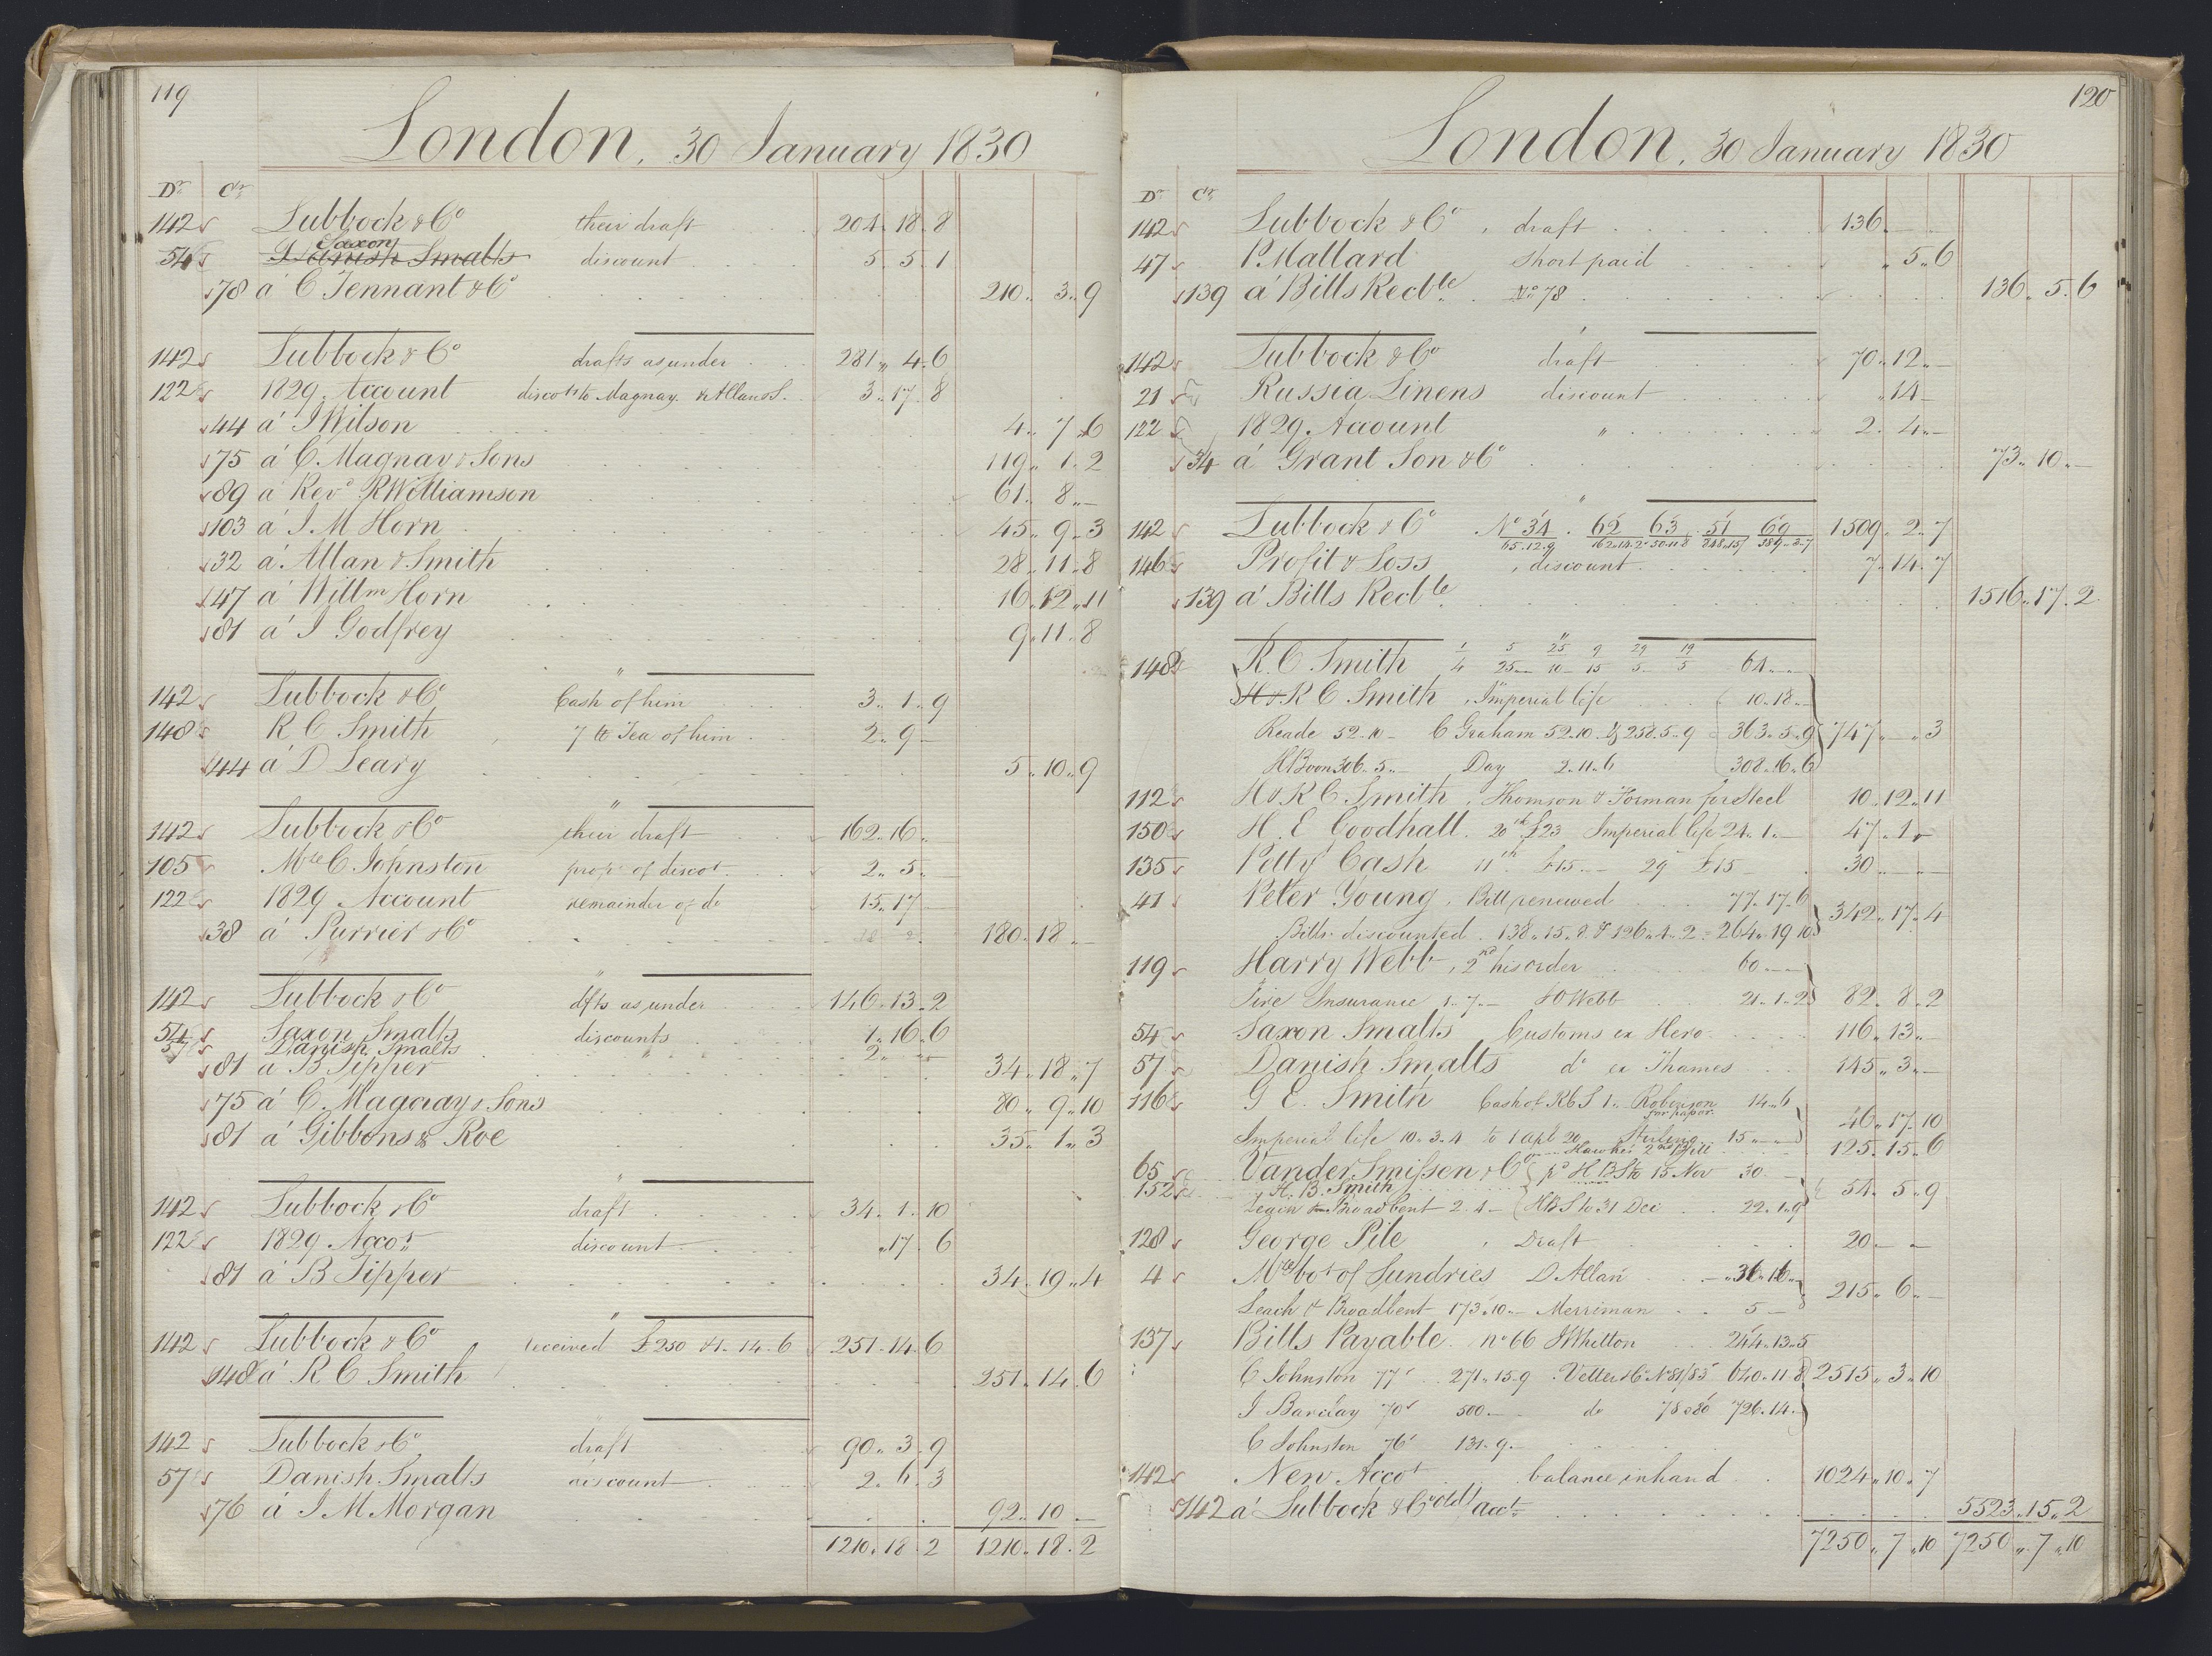 119
London, 30 January 1830
Dr Cr
142 Lubbock & Co their draft 204 . 18 . 8
54 Danish Smalts Saxon discount 5 . 5 . 1
78 á C Tennant & Co 210 . 3 . 9
142 Lubbock & Co drafts as under 281 . 4 . 6
122 1829 Account discots to Magnay & Allan & S. 3 . 17 . 8
44 á J Wilson 4 . 7 . 6
75 á C. Magnay & Sons 119 . 1 . 2
89 á Revd R Williamson 61 . 8 . –
103 á J. M Horn 45 . 9 . 3
32 á Allan & Smith 28 . 11 . 8
47 á Willm Horn 16 . 12 . 11
81 á J Godfrey 9 . 11 . 8
"
142 Lubbock & Co Cash of him 3 . 1 . 9
148 R C Smith 7 lb Tea of him 2 . 9 –
44 á D Leary 5 . 10 . 9
"
142 Lubbock & Co their draft 162 . 16 . –
105 Mrs C Johnston propn of discot 2 . 5 . –
122 1829 Account remainder of do 15 . 17 –
38 á Purrier & Co 180 . 18 . –
"
142 Lubbock & Co dfts as under 146 . 13 . 2
54 Saxon Smalts discounts 1 . 16 . 6
57 Danish Smalts " 2 . – –
81 á B Tipper 34 . 18 . 7
75 á C. Magnay & Sons 80 . 9 . 10
81 á Gibbons & Roe 35 . 1 . 3
"
142 Lubbock & Co draft 34 . 1 . 10
122 1829 Accot discount " 17 . 6
81 á B Tipper 34 . 19 . 4
"
142 Lubbock & Co received £250 & 1 . 14 . 6 251 . 14 . 6
148 á R C Smith 251 . 14 . 6
"
142 Lubbock & Co draft 90 . 3 . 9
57 Danish Smalts discount 2 . 6 . 3
76 á J M Morgan 92 . 10 –
1210 . 18 . 2 1210 . 18 . 2
120
London, 30 January 1830
Dr Cr
142 Lubbock & Co , draft 136 . –
47 P. Mallard Short paid " 5 . 6
139 á Bills Recble No 78 136 . 5 . 6
142 Lubbock & Co draft 70 . 12 . –
21 Russia Linens discount " 14 –
122 1829 Account " 2 . 4 . –
34 á Grant Son & Co 73 . 10 . –
"
142 Lubbock & Co No 34 . 62 63 51 69 1509 . 2 . 7
65.12.9 162.14.2 50.11.8 848.15/ 389.2.7
146 Profit & Loss , discount 7 . 14 . 7
139 á Bills Recble 1516 . 17 . 2
"
148 R. C Smith 1/4 5/25 25/10 9/15 29/5 19/5 64 . –
H & R C Smith , Imperial life 10 . 18 . –
Reade 52.10– C Graham 52.10 & 258.5.9 363 . 5 . 9 747 . – . 3
H Boon 306.5.– Day 2.11.6 308 . 16 . 6
112 H & R C Smith , Thomson & Forman for Steel 10 . 12 . 11
150 H. E Goodhall . 20th £23 Imperial life 24 . 1 . – 47 . 1 –
135 Petty Cash 11th £15 . – 29 £15 – 30 . – –
41 Peter Young , Bill renewed 77 . 17 . 6 342 . 17 . 4
Bills discounted . 138 . 15 . 8 & 126 . 4 . 2 = 264 . 19 10
119 Harry Webb , 2nd his order 60 . –
Fire Insurance 1 . 7 . – & O Webb 21 . 1 . 2 82 . 8 . 2
54 Saxon Smalts Customs ex Hero 116 . 13 . –
57 Danish Smalts do ex Thames 145 . 3 . –
116 G E. Smith Cash of R C S 1 . – Robinson for paper 14 . 6 40 . 17 . 10
Imperial life 10 . 3 . 4 to 1 apl 20 Stirling 15 . – –
Hawkes 2nd Bill 125 . 15 . 6
65 Vander Smissen & Co pd H B S to 15 Nov 30 . –
152 H. B. Smith 54 . 5 . 9
Leach & Broadbent 2 . 4 – H B S to 31 Dec 22 . 1 . 9
128 George Pile , Draft 20 . – –
4 Mdse bot of Sundries D Allan 36 . 16 . – 215 . 6 . –
Leach & Broadbent 173 . 10 . – Merriman 5 –
137 Bills Payable . no 66 J Whitton 244 . 13 . 5
C Johnston 77 271 . 15 . 9 Vetter & Co No 81/83 640 . 11 . 8 2515 . 3 . 10
J Barclay 70 500 . – do 78 & 80 726 . 14 . –
C Johnston 76 131 . 9 . –
142 New Accot balance in hand 1024 . 10 . 7
142 á Lubbock & Co old acct 5523 . 15 . 2
7250 . 7 . 10 7250 . 7 . 10